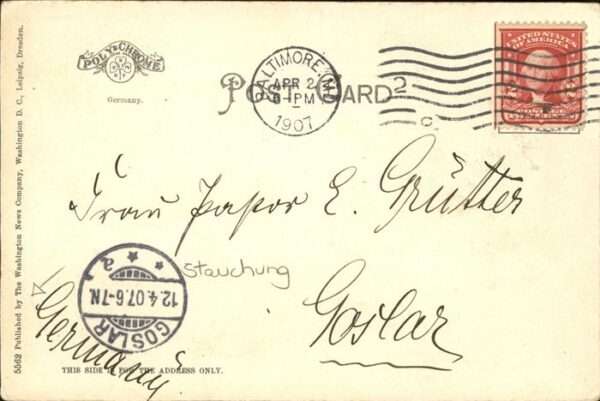 5562 Published by The Washington News Company, Washington D. C., Leipzig, Dresden.
POLY CHROME
Germany.
POST CARD
BALTIMORE, MD.
APR 2
6-PM
1907
UNITED STATES
OF AMERICA
2
C.
Frau Pastor E. Grütter
Stauchung
Goslar
GOSLAR
* * a
12.4.07.6-7N.
Germany
THIS SIDE IS FOR THE ADDRESS ONLY.